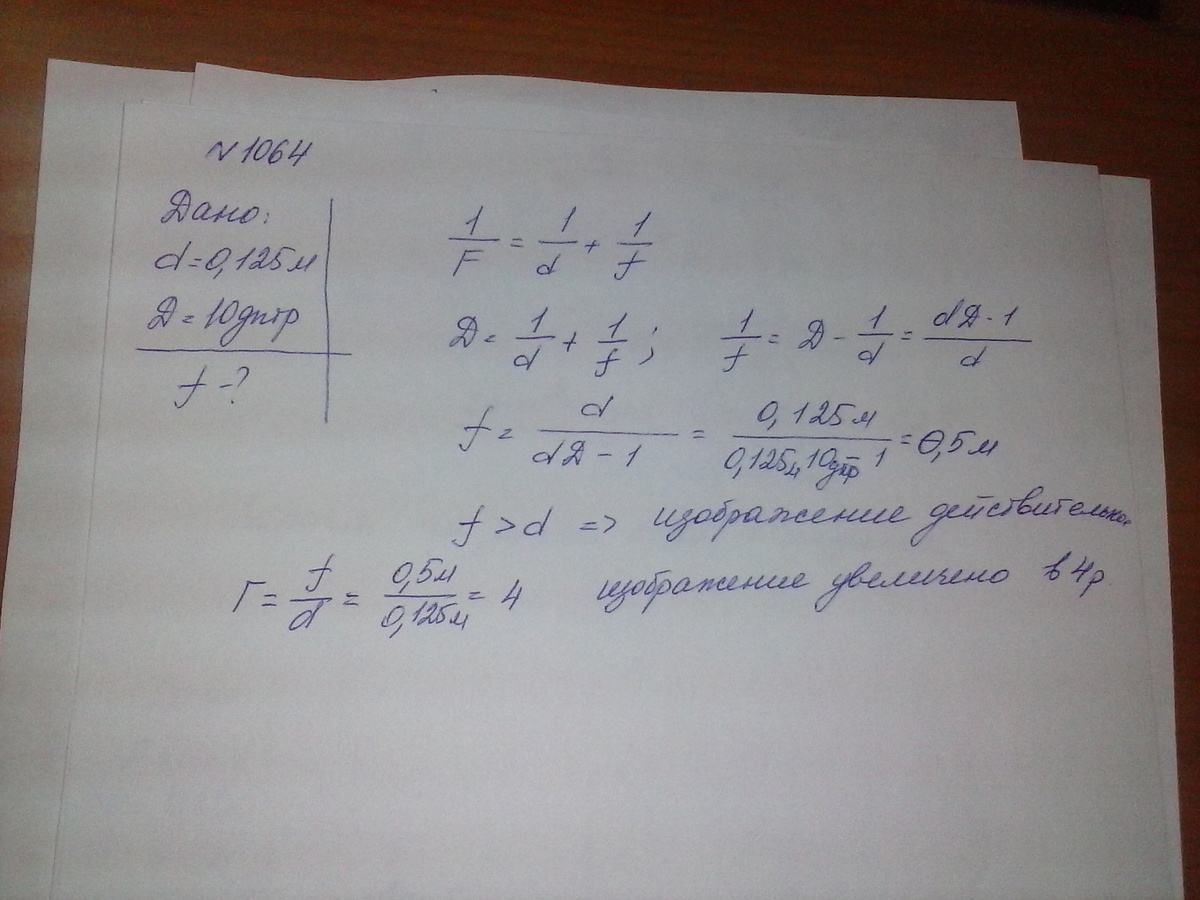 N 1064
Дано:
d = 0,125 м
D = 10 дптр
f - ?
1/F = 1/d + 1/f
D = 1/d + 1/f ; 1/f = D - 1/d = (dD - 1)/d
f = d/(dD - 1) = 0,125 м/(0,125м · 10 дптр - 1) = 0,5 м
f > d => изображение действительное
Г = f/d = 0,5м/0,125м = 4 изображение увеличено в 4 р.